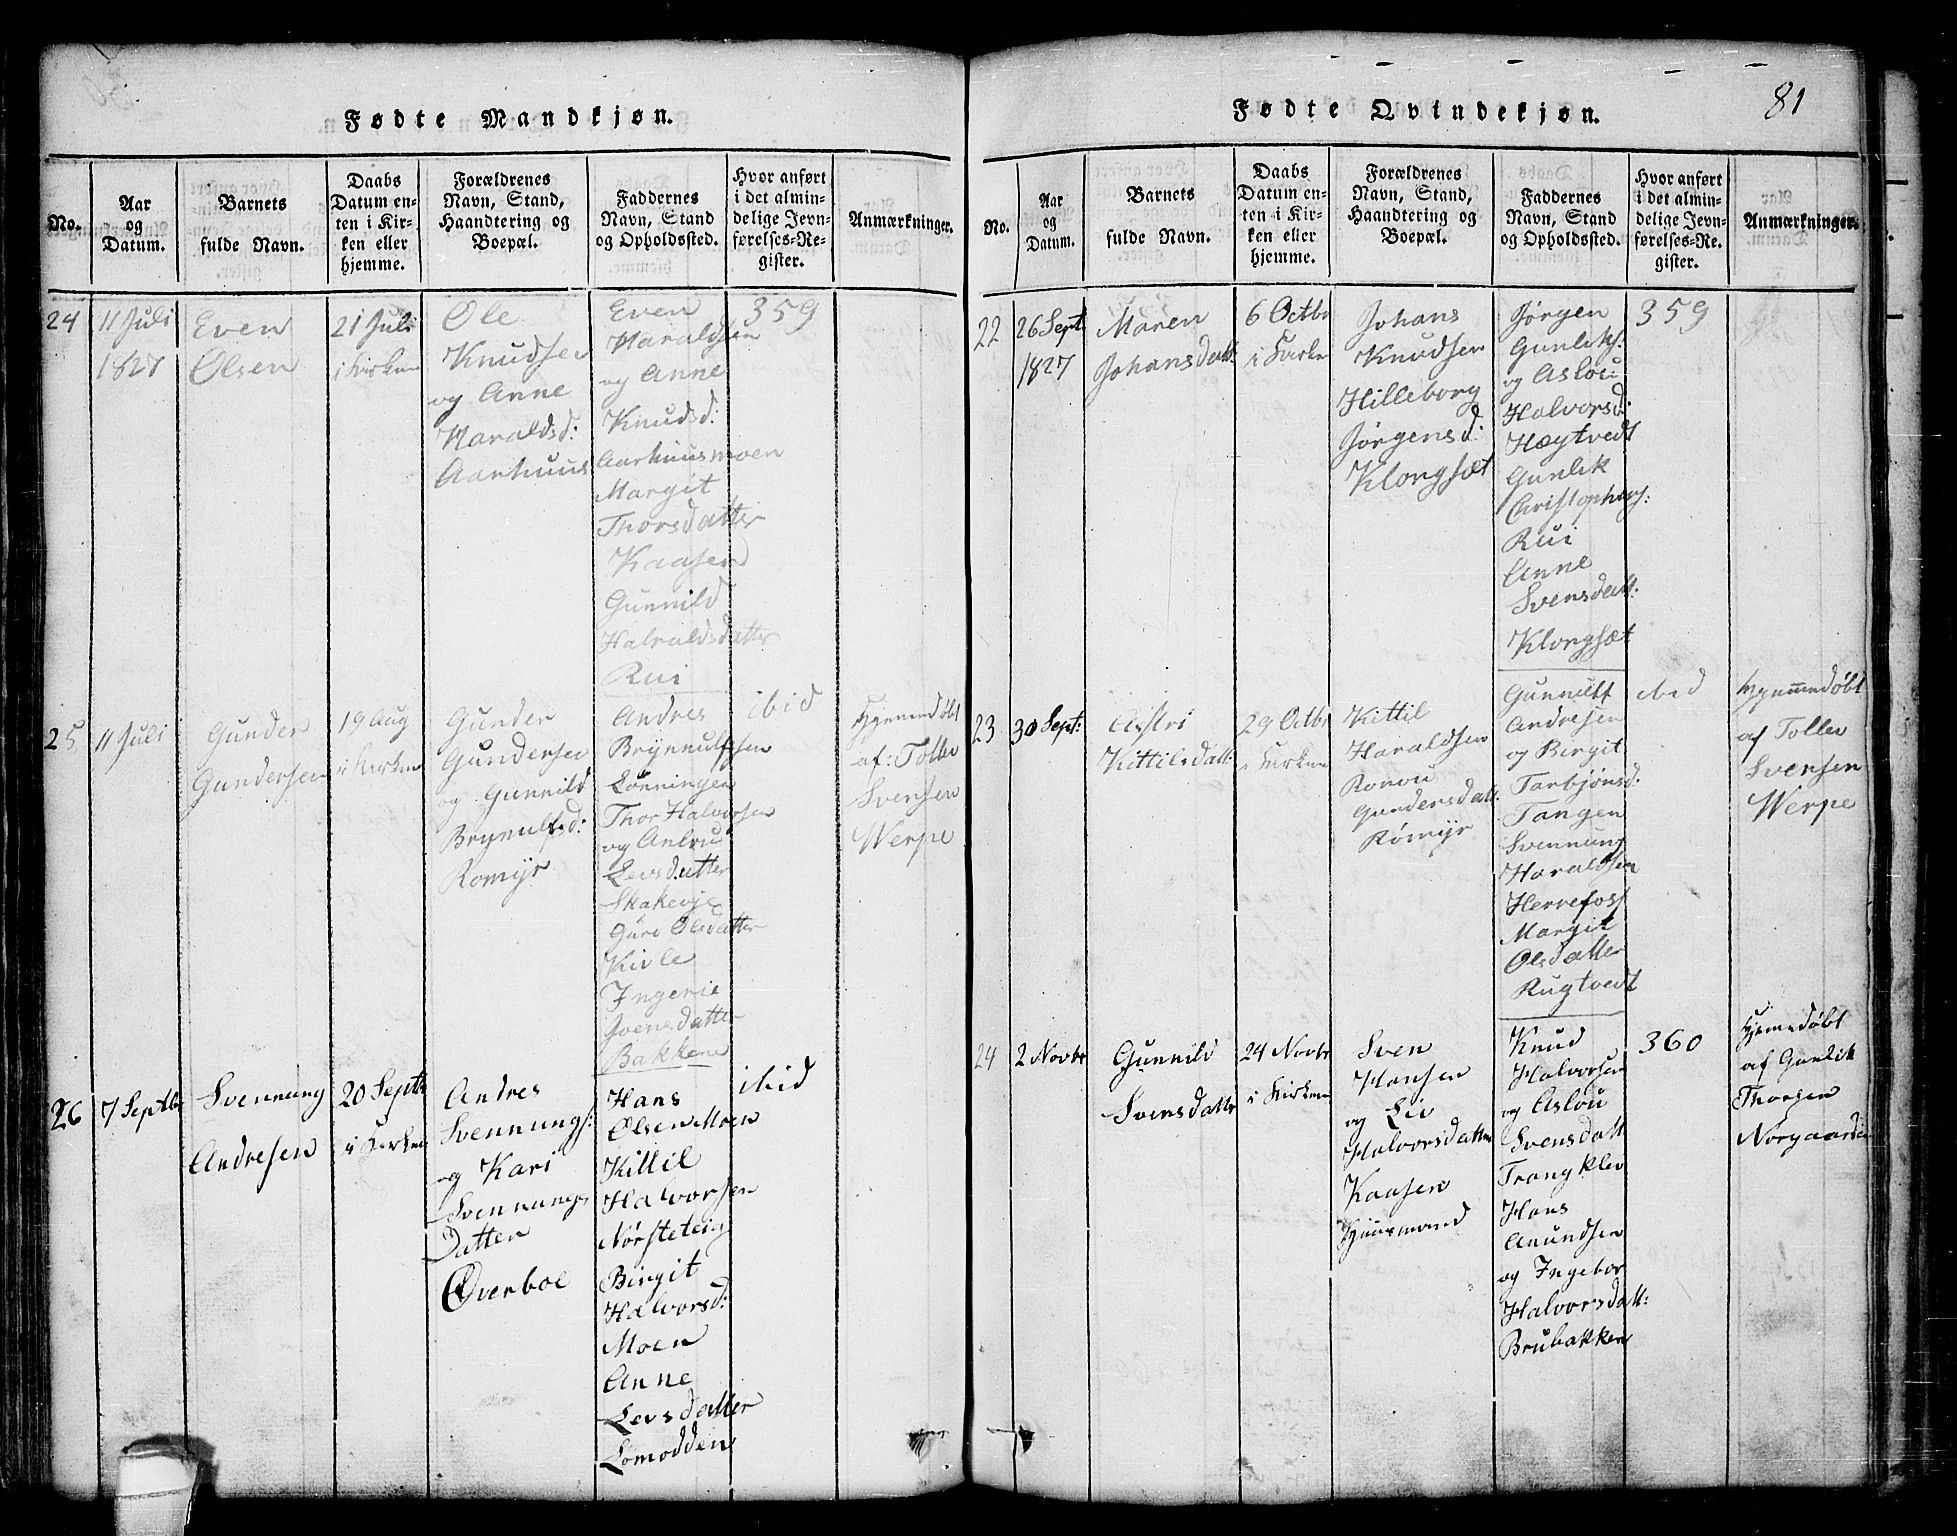 Fødte Mandkjøn.
No.
Aar
og
Datum.
Barnets
fulde Navn.
Daabs
Datum en-
ten i Kir-
ken eller
hjemme.
Forældrenes
Navn, Stand,
Haandtering og
Boepæl.
Faddernes
Navn, Stand
og Opholdssted.
Hvor anført
i det almin-
delige Jevn-
førelses-Re-
gister.
Anmærkninger.
24
11 Juli
1827
Even
Olsen
21 Juli
i Kirken
Ole
Knudsen
og Anne
Haraldsd:
Aarhuus
Even
Haraldsen
og Anne
Knudsd:
Aarhuusmoen
Margit
Thorsdatter
Kaasen
Gunnild
Halvaldsdatter
Rui
359
25
11 Juli
Gunder
Gundersen
19 Aug
i Kirken
Gunder
Gundersen
og Gunnild
Brynulfsd:
Romyr
Andres
Brynnulfsen
Lønningen
Thor Halvorsen
og
Levsdatter
Skakevje
Guro Olsdatter
Kivle
Ingerie
Svensdatter
Bakkene
ibid
Hjemmedøbt
af: Tollev
Svensen
Werpe
26
7 Septbr
Svennung
Andresen
20 Septbr
i Kirken
Andres
Svennungs:
og Kari
Svennungs
Datter
Øverboe
Hans
Olsen Moen
Kittil
Halvorsen
Nørsteteig
Birgit
Halvorsd:
Moen
Anne
Levsdatter
Lomodden
ibid
Fødte Qvindekjøn.
81
No.
Aar
og
Datum.
Barnets
fulde Navn.
Daabs
Datum en-
ten i Kir-
ken eller
hjemme.
Forældrenes
Navn, Stand,
Haandtering og
Boepæl.
Faddernes
Navn, Stand
og Opholdssted.
Hvor anført
i det almin-
delige Jevn-
førelses-Re-
gister.
Anmærkninger.
22
26 Sept
1827
Maren
Johansdatt:
6 Octbr
i Kirken
Johans
Knudsen
Hilleborg
Jørgensd:
Klongsæt
Jørgen
Gunliks:
og Aslou:
Halvorsd:
Høgtvedt
Gunlik
Christophers:
Rui
Anne
Svensdatt:
Klongsæt
359
23
30 Sept:
Astri
Kittilsdatt:
29 Octbr
i Kirken
Kittil
Haraldsen
Ronou
Gundersdatt:
Rømyr
Gunnulf
Andresen
og Birgit
Tarbjønsd:
Tangen
Svennung
Haraldsen
Herrefoss
Margit
Olsdatter
Rugtvedt
ibid
Hjemmedøbt
af Tollev
Svensen
Werpe
24
2 Novbr
Gunnild
Svensdatter
24 Novbr
i Kirken
Sven
Hansen
og Liv
Halvorsdatter
Kaasen
Huusmand
Knud
Halvorsen
og Aslou
Svensdatt
Trangklev
Hans
Anundsen
og Ingebor
Halvorsdatt:
Brubakken
360
Hjemedøbt
af Gunlik
Thorsen
Norgaarden